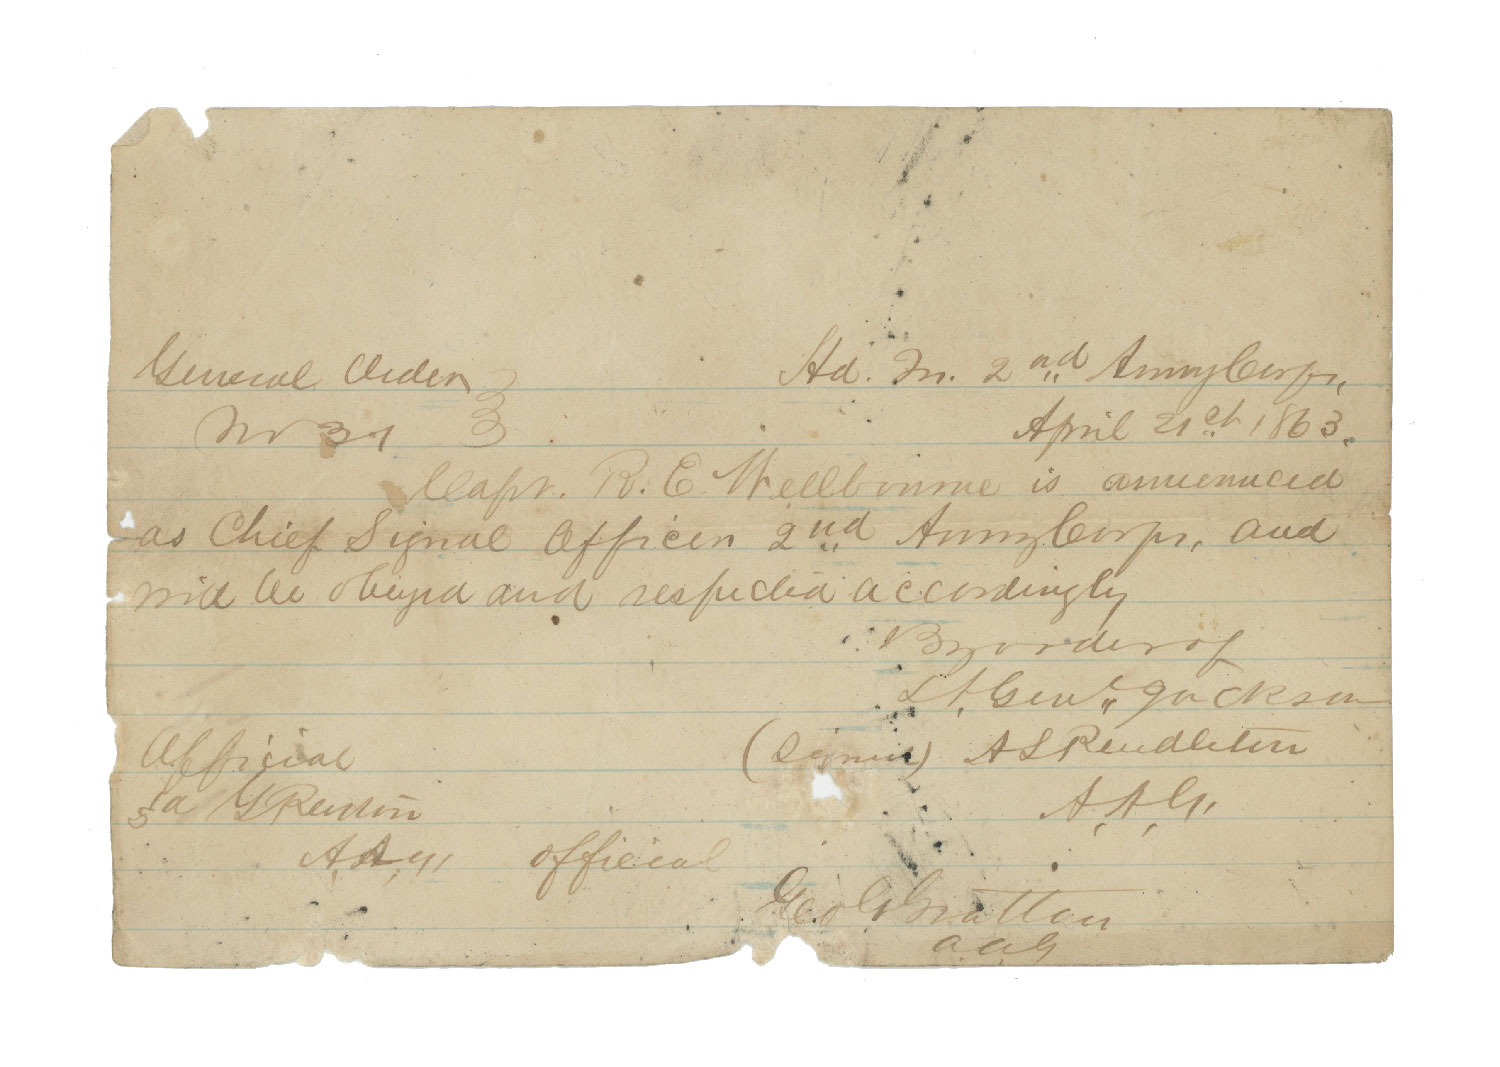 General Orders Hd. Qrs. 2nd Army Corps,
No 37 April 21st 1863.
Capt. R. E. Wellbourne is announced
as Chief Signal Officer 2nd Army Corps, and
will be obeyed and respected accordingly
By order of
Lt. Genl. Jackson
Official (Signed) A S Pendleton
A. A. G.
A. A. G. official
Geo G Grattan
a a G